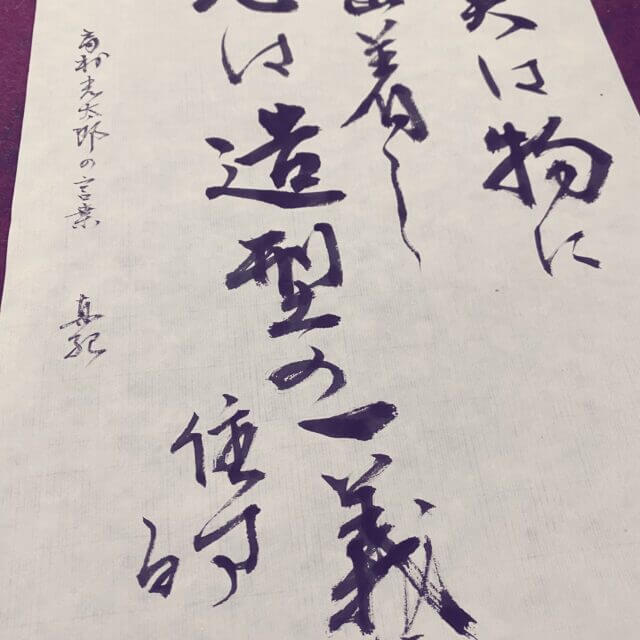 は物に
着し
は造型の一義
住
高村光太郎の言葉 真紀